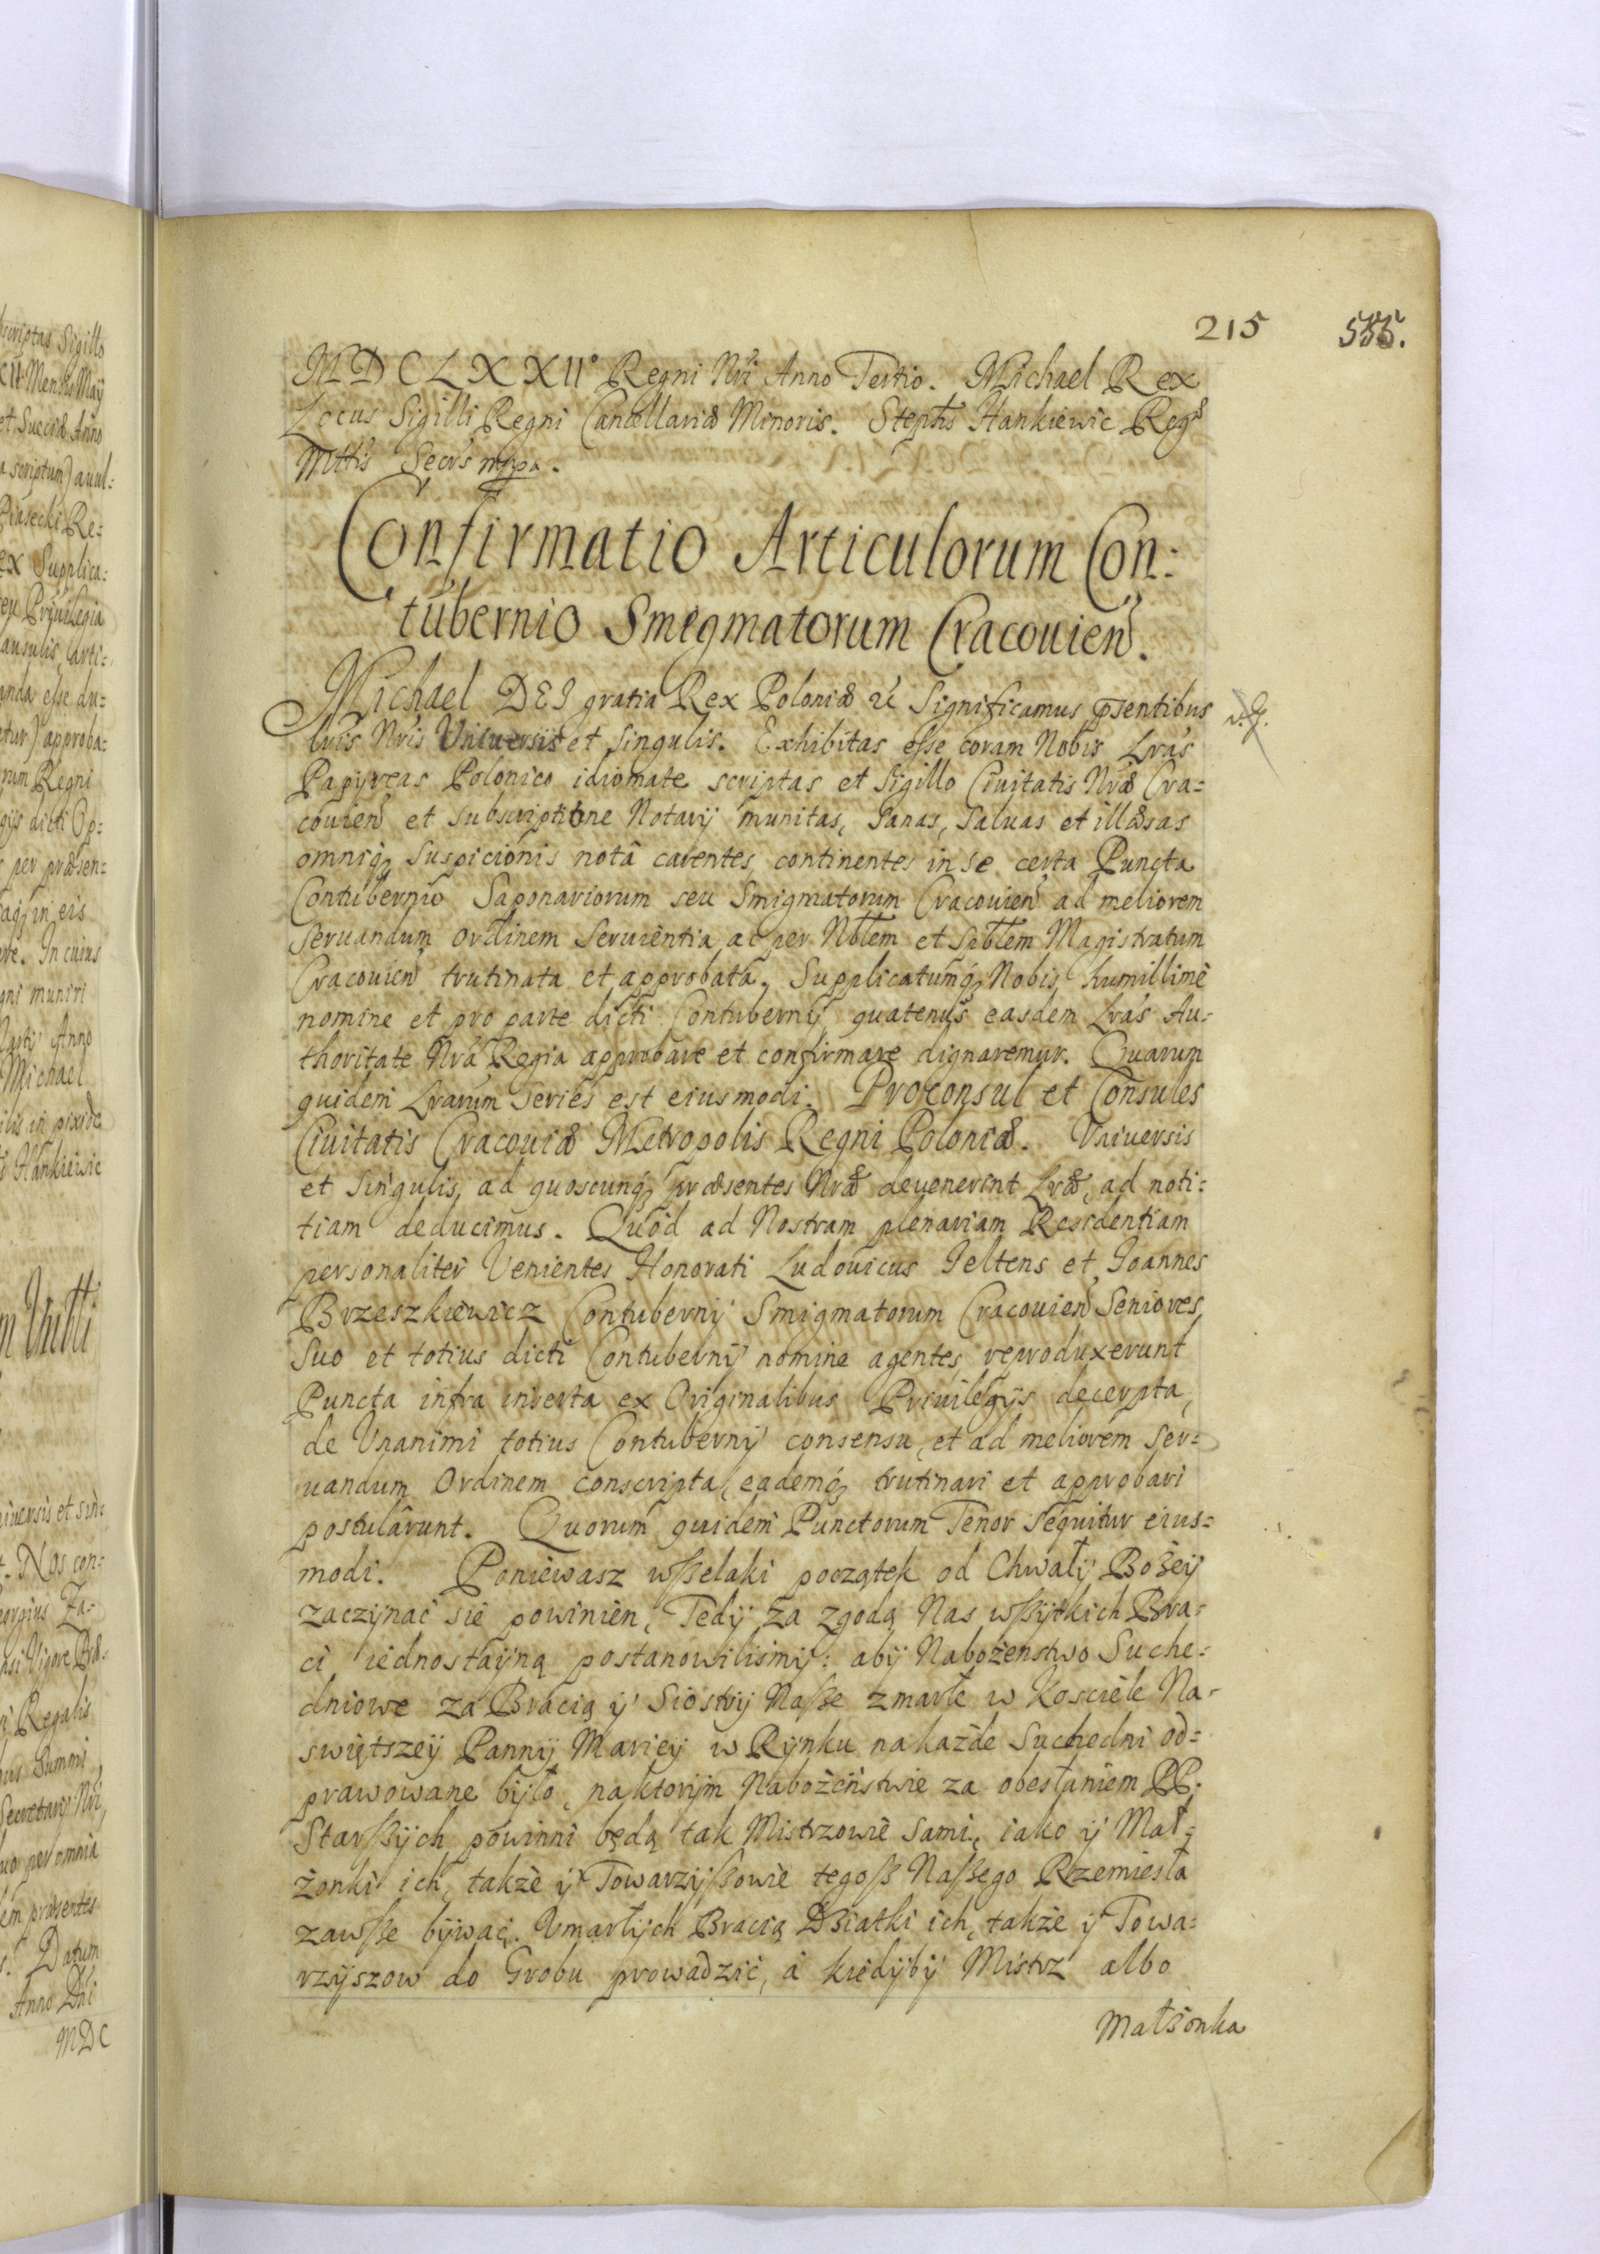 215 555.
MDCLXXII° Regni Nri Anno Tertio. Michael Rex
Locus Sigilli Regni Cancellariæ Minoris. Stephs Hankiewic Reg
Mttis Secrs mppa.
Confirmatio Articulorum Con:
tubernio Smegmatorum Cracouien.
Michael DEI gratia Rex Poloniæ &c Significamus psentibus
lris Nris Vniuersis et singulis. Exhibitas esse coram Nobis Lras
Papyreas Polonico idiomate scriptas et Sigillo Ciuitatis Nræ Cra-
couien et subscriptione Notarij munitas, sanas, saluas et illæsas
omniq suspicionis notâ carentes, continentes in se certa Puncta
Contubernio Saponariorum seu Smigmatorum Cracouien ad meliorem
seruandum ordinem seruientia ac per Nblem et Sptblem Magistratum
Cracouien trutinata et approbata. Supplicatumq Nobis humillimè
nomine et pro parte dicti Contubernij quatenus easdem Lras Au-
thoritate Nra Regia approbare et confirmare dignaremur. Quarum
quidem Lrarum series est eiusmodi. Proconsul et Consules
Ciuitatis Cracouiæ Metropolis Regni Poloniæ. Vniuersis
et Singulis, ad quoscunq præsentes Nræ deuenerint Lræ, ad noti-
tiam deducimus. Quod ad Nostram plenariam Residentiam
personaliter Venientes Honorati Ludouicus Jeltens et Joannes
Brzeszkiewicz Contubernij Smigmatorum Cracouien Seniores,
suo et totius dicti Contubernij nomine agentes reproduxerunt
Puncta infra inserta ex Originalibus Priuilegijs decerpta,
de Vnanimi totius Contubernij consensu, et ad meliorem ser-
uandum Ordinem conscripta, eademq trutinari et approbari
postulârunt. Quorum quidem Punctorum Tenor sequitur eius-
modi. Poniewasz wßelaki początek od Chwały Bożeÿ
zaczÿnać sie powinien, Tedÿ za zgodą Nas wßÿtkich Bra-
ci iednostaÿną postanowilismÿ: abÿ Nabożenstwo Suche-
dniowe za Bracią ÿ Siostrÿ Naße zmarłe w Kosciele Na-
swiętszeÿ Pannÿ Marieÿ w Rÿnku na każde Suchedni od-
prawowane bÿło, na ktorÿm Nabożeństwie za obesłaniem PP.
Starßÿch, powinni będą tak Mistrzowie sami, iako ÿ Mał-
żonki ich, także ÿ Towarzÿßowie tegoß Naßego Rzemiesła
zawße bÿwać. Vmarłÿch Bracią Dziatki ich, także ÿ Towa-
rzÿszow do Grobu prowadzić, a kiedÿbÿ Mistrz albo
Małżonka